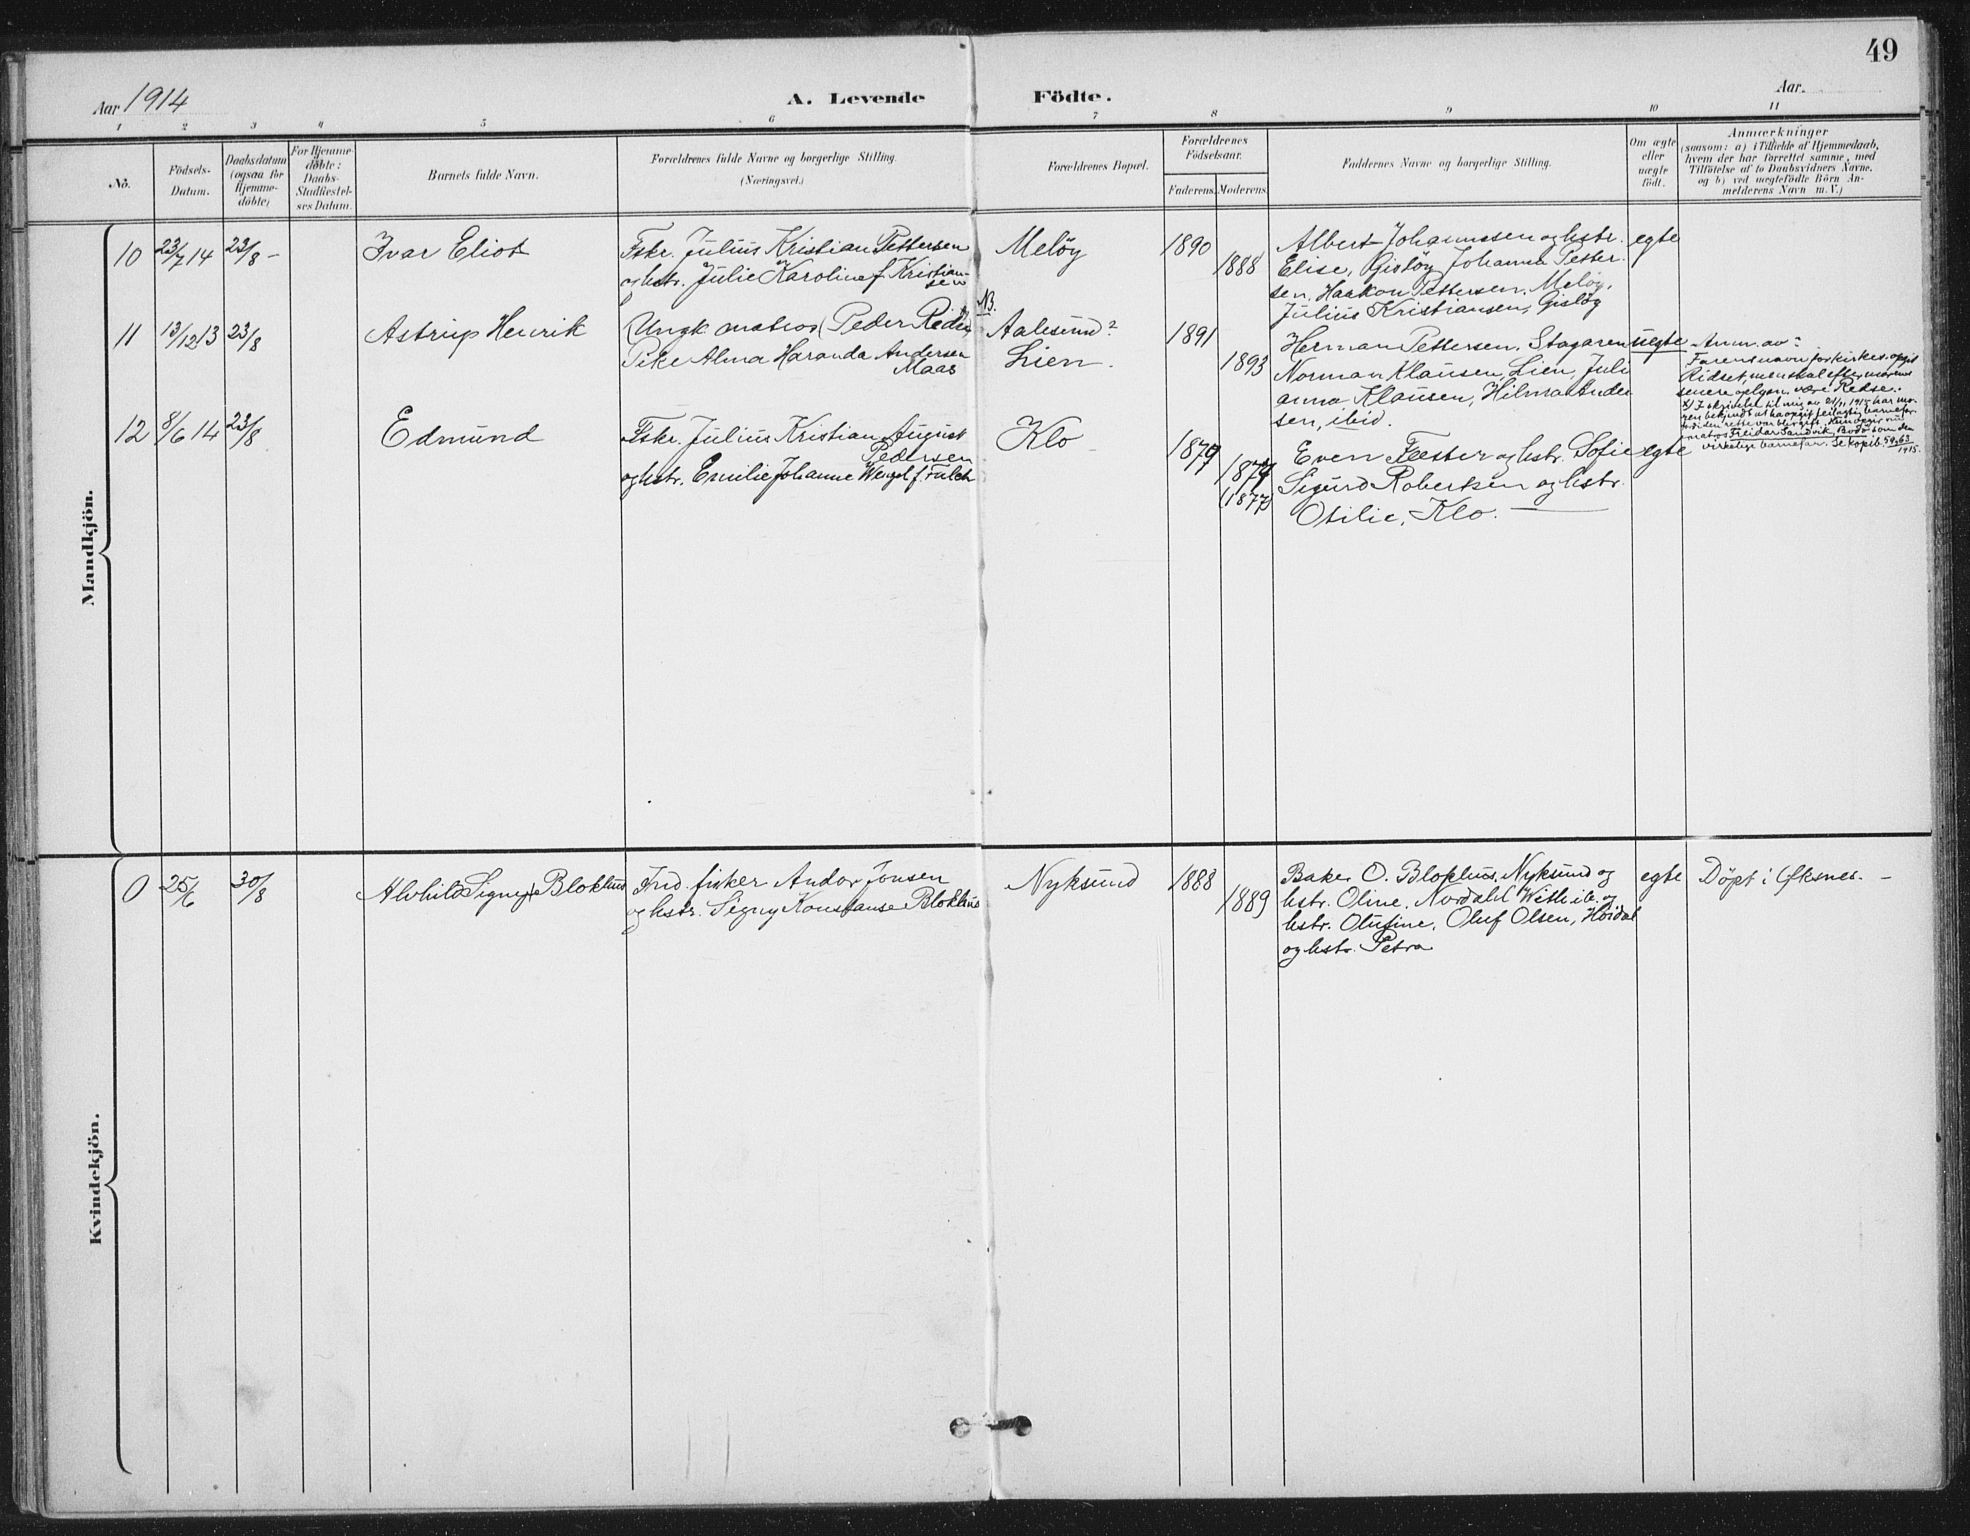 49
Aar 1914
A. Levende Födte.
Aar.
1 2 3 4 5 6 7 8 9 10 11
No.
Födsels-
Datum.
Daabsdatum
(ogsaa for
Hjemme-
döbte)
For Hjemme-
döbte:
Daabs-
Stadfæstel-
ses Datum.
Barnets fulde Navn.
Forældrenes fulde Navne og borgerlige Stilling.
(Næringsvei.)
Forældrenes Bopæl.
Forældrenes
Födselsaar.
Faderens. Moderens.
Faddernes Navne og borgerlige Stilling.
Om ægte
eller
uægte
födt.
Anmærkninger
(saasom: a) i Tilfælde af Hjemmedaab,
hvem der har forrettet samme, med
Tilföielse af to Daabsvidners Navne.
og b) ved uægtefödte Börn An-
melderens Navn m. V.)
Mandkjön.
10 23/7 14 23/8 -
Ivar Eliot
Fskr. Julius Kristian Pettersen
og hstr. Julie Karoline f. Kristian-
sen
Meløy
1890
1888
Albert Johannessen og hstr.
Elise, Gisløy Johanna Petter-
sen, Haakon Pettersen, Meløy,
Julius Kristiansen, Gisløy
egte
11 13/12 13 23/8
Astrup Henrik
Ungk. matros (Peder Redse)
Pike Alma Haranda Andersen
Maas
NB.
Aalesund?
Lien.
1891
1893
Herman Pettersen, Stagaren
Norman Klausen, Lien, Juli
anna Klausen, Hilma Ander
sen, ibid.
uegte
Anm. av:
Farens navn for kirkes. opgit
Ridset, men skal efter morens
senere opgave være Redse.
12 8/6 14 23/8
Edmund
Fskr. Julius Kristian August
Pedersen
og hstr. Emilie Johanne Wengel f. Falch
Klo
1877
1879
(1877)
Even Feester og hstr. Sofie
Sigurd Robertsen og hstr.
Otilie, Klo.
egte
virkelige barnefar. Se kopib. 59, 63
1915.
Kvindekjön.
0 25/6 30/8
Alvhild Signy Blokhus
Ind. fisker Andor Jonsen
og hstr. Signy Konstanse Blokhus
Nyksund
1888
1889
Baker O. Blokhus, Nyksund og
hstr. Oline, Nordahl With ib. og
hstr. Olufine, Oluf Olsen, Høidal
og hstr. Petra
egte
Döpt i Øksnes. -